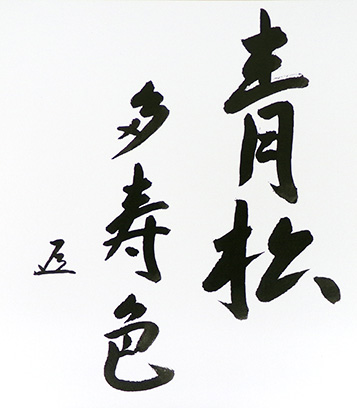 青松
多寿色